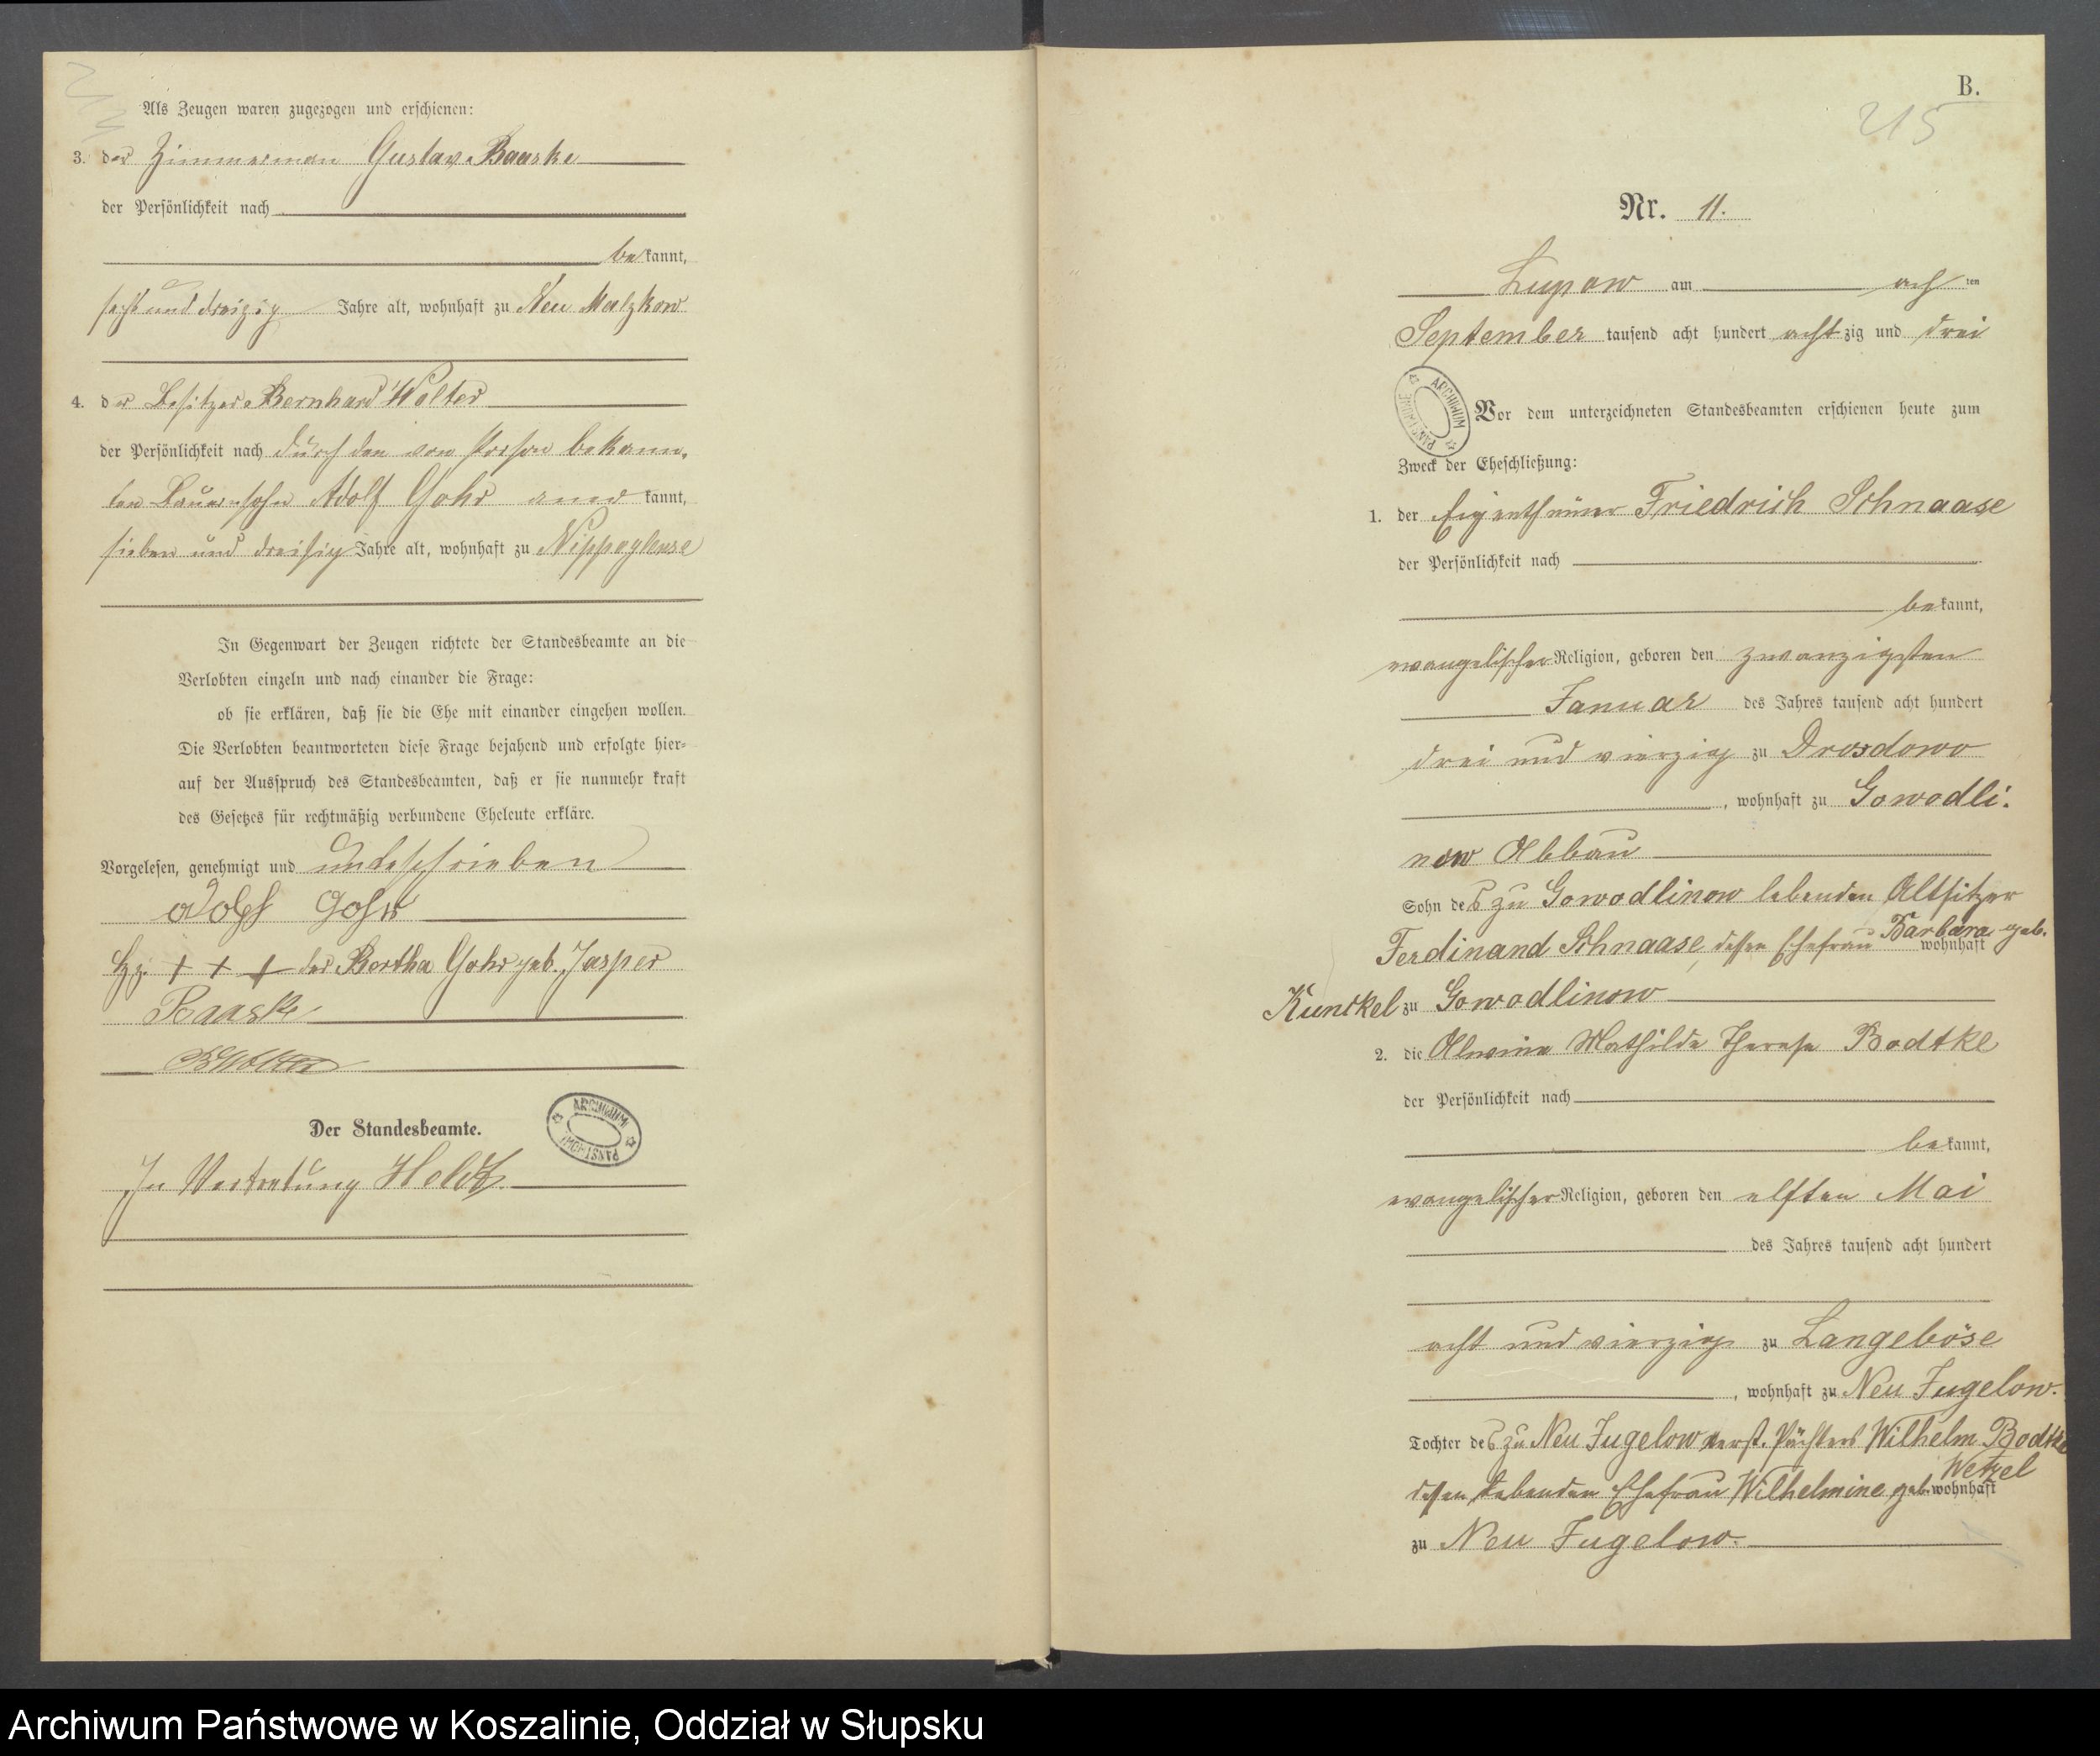 Als Zeugen waren zugezogen und erschienen:
3. der Zimmerman Gustav Baaske
der Persönlichkeit nach
bekannt,
sechs und dreizig Jahre alt, wohnhaft zu Neu Malzkow
4. der Besitzer Bernhard Wolter
der Persönlichkeit nach durch den von Person bekann-
ten Bauernsohn Adolf Gohr aner kannt,
sieben und dreißig Jahre alt, wohnhaft zu Nippoglense
In Gegenwart der Zeugen richtete der Standesbeamte an die
Verlobten einzeln und nach einander die Frage:
ob sie erklären, daß sie die Ehe mit einander eingehen wollen.
Die Verlobten beantworteten diese Frage bejahend und erfolgte hier-
auf der Ausspruch des Standesbeamten, daß er sie nunmehr kraft
des Gesetzes für rechtmäßig verbundene Eheleute erkläre.
Vorgelesen, genehmigt und unterschrieben
Adolf Gohr
Hz. + + + der Bertha Gohr geb. Jasper
Baaske
B Wolter
Der Standesbeamte.
ARCHIWUM
In Vertretung
B.
215
Nr. 11.
Lupow am acht ten
September tausend acht hundert acht zig und drei
ARCHIWUM PAŃSTWOWE
Vor dem unterzeichneten Standesbeamten erschienen heute zum
Zweck der Eheschließung:
1. der Eigenthümer Friedrich Schnaase
der Persönlichkeit nach
bekannt,
evangelischer Religion, geboren den zwanzigsten
Januar des Jahres tausend acht hundert
drei und vierzig zu Drosdowo
, wohnhaft zu Gowodli-
now Abbau
Sohn des zu Gowodlinow lebenden Altsitzer
Ferdinand Schnaase, dessen Ehefrau Barbara geb.
wohnhaft
Kunckel zu Gowodlinow
2. die Alwine Mathilde Therese Bodtke
der Persönlichkeit nach
bekannt,
evangelischer Religion, geboren den elften Mai
des Jahres tausend acht hundert
acht und vierzig zu Langeböse
, wohnhaft zu Neu Jugelow.
Tochter des zu Neu Jugelow verst. Pächters Wilhelm Bodtke
Wetzel
dessen lebenden Ehefrau Wilhelmine geb. wohnhaft
zu Neu Jugelow.
Archiwum Państwowe w Koszalinie, Oddział w Słupsku